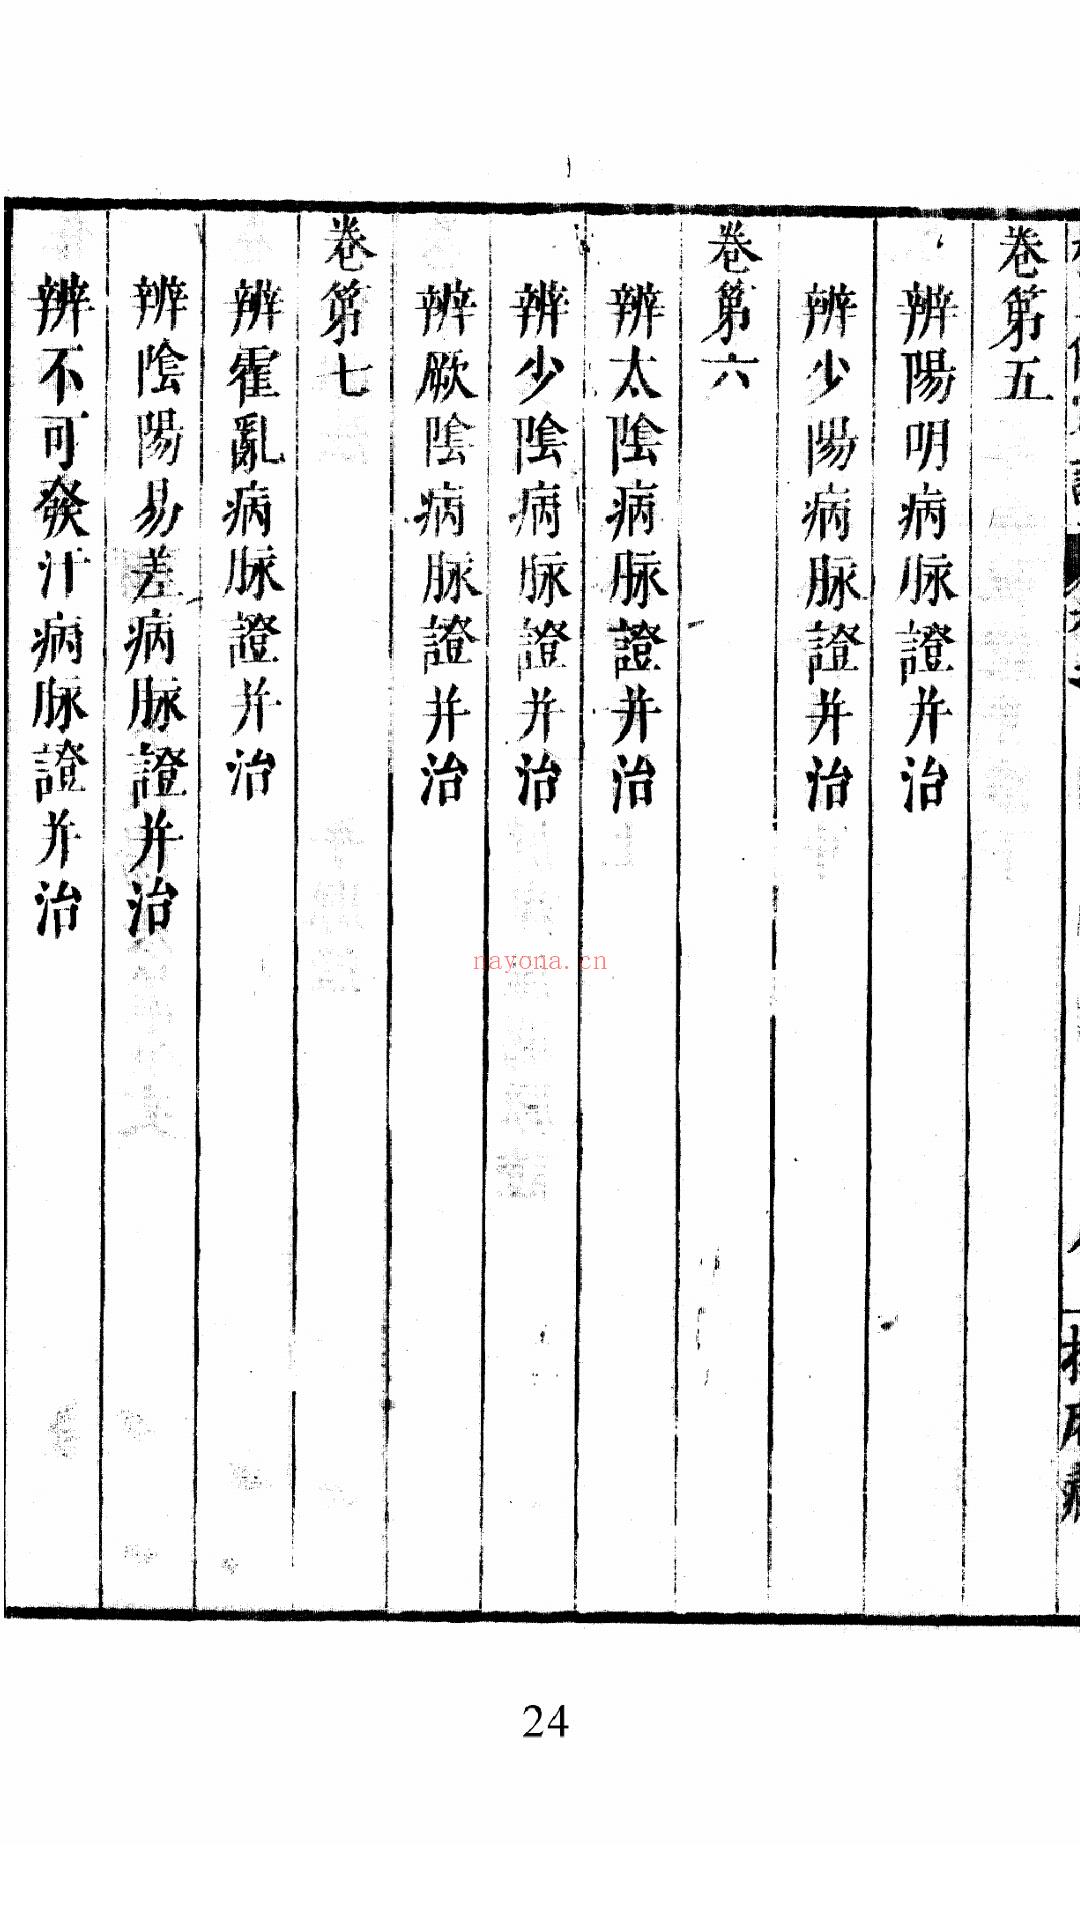 卷第五
辨陽明病脉證并治
辨少陽病脉證并治
卷第六
辨太陰病脉證并治
辨少陰病脉證并治
辨厥陰病脉證并治
卷第七
辨霍亂病脉證并治
辨陰陽易差病脉證并治
辨不可發汗病脉證并治
nayona.cn
24